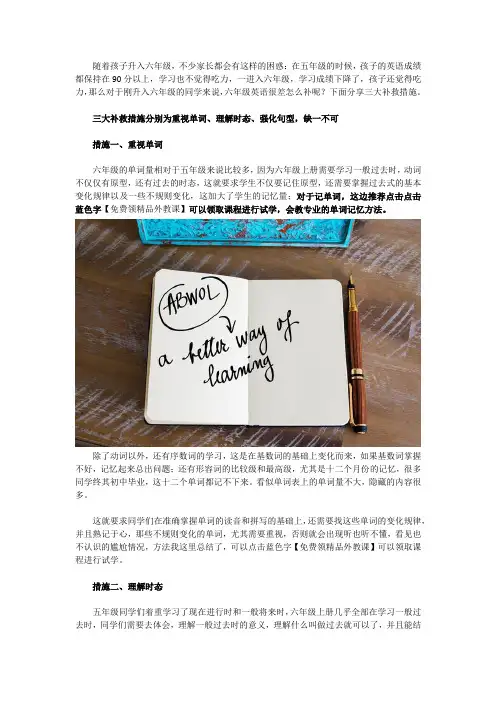 随着孩子升入六年级，不少家长都会有这样的困惑：在五年级的时候，孩子的英语成绩
都保持在 90 分以上，学习也不觉得吃力，一进入六年级，学习成绩下降了，孩子还觉得吃
力，那么对于刚升入六年级的同学来说，六年级英语很差怎么补呢？下面分享三大补救措施。
三大补救措施分别为重视单词、理解时态、强化句型，缺一不可
措施一、重视单词
六年级的单词量相对于五年级来说比较多，因为六年级上册需要学习一般过去时，动词
不仅仅有原型，还有过去的时态，这就要求学生不仅要记住原型，还需要掌握过去式的基本
变化规律以及一些不规则变化，这加大了学生的记忆量；对于记单词，这边推荐点击点击
蓝色字【免费领精品外教课】可以领取课程进行试学，会教专业的单词记忆方法。
ABWOL
a better way of
learning
除了动词以外，还有序数词的学习，这是在基数词的基础上变化而来，如果基数词掌握
不好，记忆起来总出问题；还有形容词的比较级和最高级，尤其是十二个月份的记忆，很多
同学终其初中毕业，这十二个单词都记不下来。看似单词表上的单词量不大，隐藏的内容很
多。
这就要求同学们在准确掌握单词的读音和拼写的基础上，还需要找这些单词的变化规律，
并且熟记于心，那些不规则变化的单词，尤其需要重视，否则就会出现听也听不懂，看见也
不认识的尴尬情况，方法我这里总结了，可以点击蓝色字【免费领精品外教课】可以领取课
程进行试学。
措施二、理解时态
五年级同学们着重学习了现在进行时和一般将来时，六年级上册几乎全部在学习一般过
去时，同学们需要去体会，理解一般过去时的意义，理解什么叫做过去就可以了，并且能结